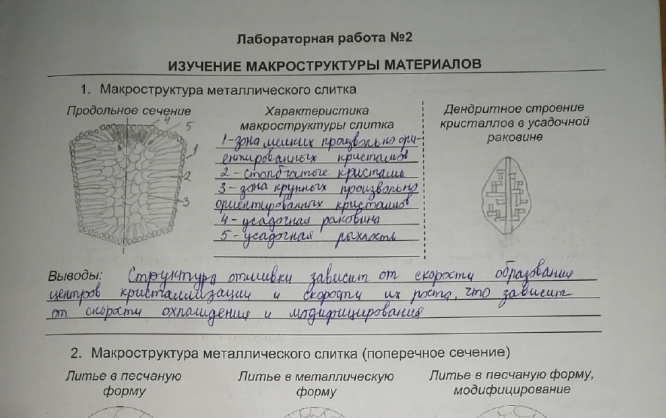 Лабораторная работа №2
ИЗУЧЕНИЕ МАКРОСТРУКТУРЫ МАТЕРИАЛОВ
1. Макроструктура металлического слитка
Продольное сечение
4 5
1
2
3
Характеристика
макроструктуры слитка
1-зона мелких произвольно ори-
ентированных кристалов
2-столбчатые кристалы
3-зона крупных произвольно
ориентированных кристалов
4-усадочная раковина
5-усадочная рыхлость
Дендритное строение
кристаллов в усадочной
раковине
Выводы: Структура отливки зависит от скорости образования
центров кристаллизации и скорости их роста, что зависит
от скорости охлаждения и модифицирования
2. Макроструктура металлического слитка (поперечное сечение)
Литье в песчаную
форму
Литье в металлическую
форму
Литье в песчаную форму,
модифицирование